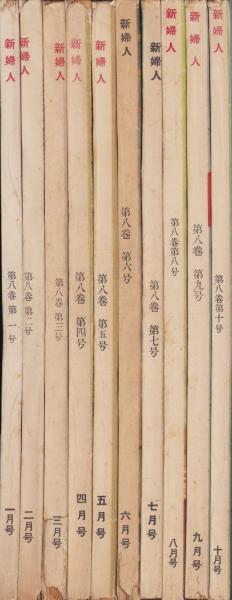 新婦人 第八巻 第一号 一月号
新婦人 第八巻 第二号 二月号
新婦人 第八巻 第三号 三月号
新婦人 第八巻 第四号 四月号
新婦人 第八巻 第五号 五月号
新婦人 第八巻 第六号 六月号
新婦人 第八巻 第七号 七月号
新婦人 第八巻第八号 八月号
新婦人 第八巻 第九号 九月号
新婦人 第八巻第十号 十月号